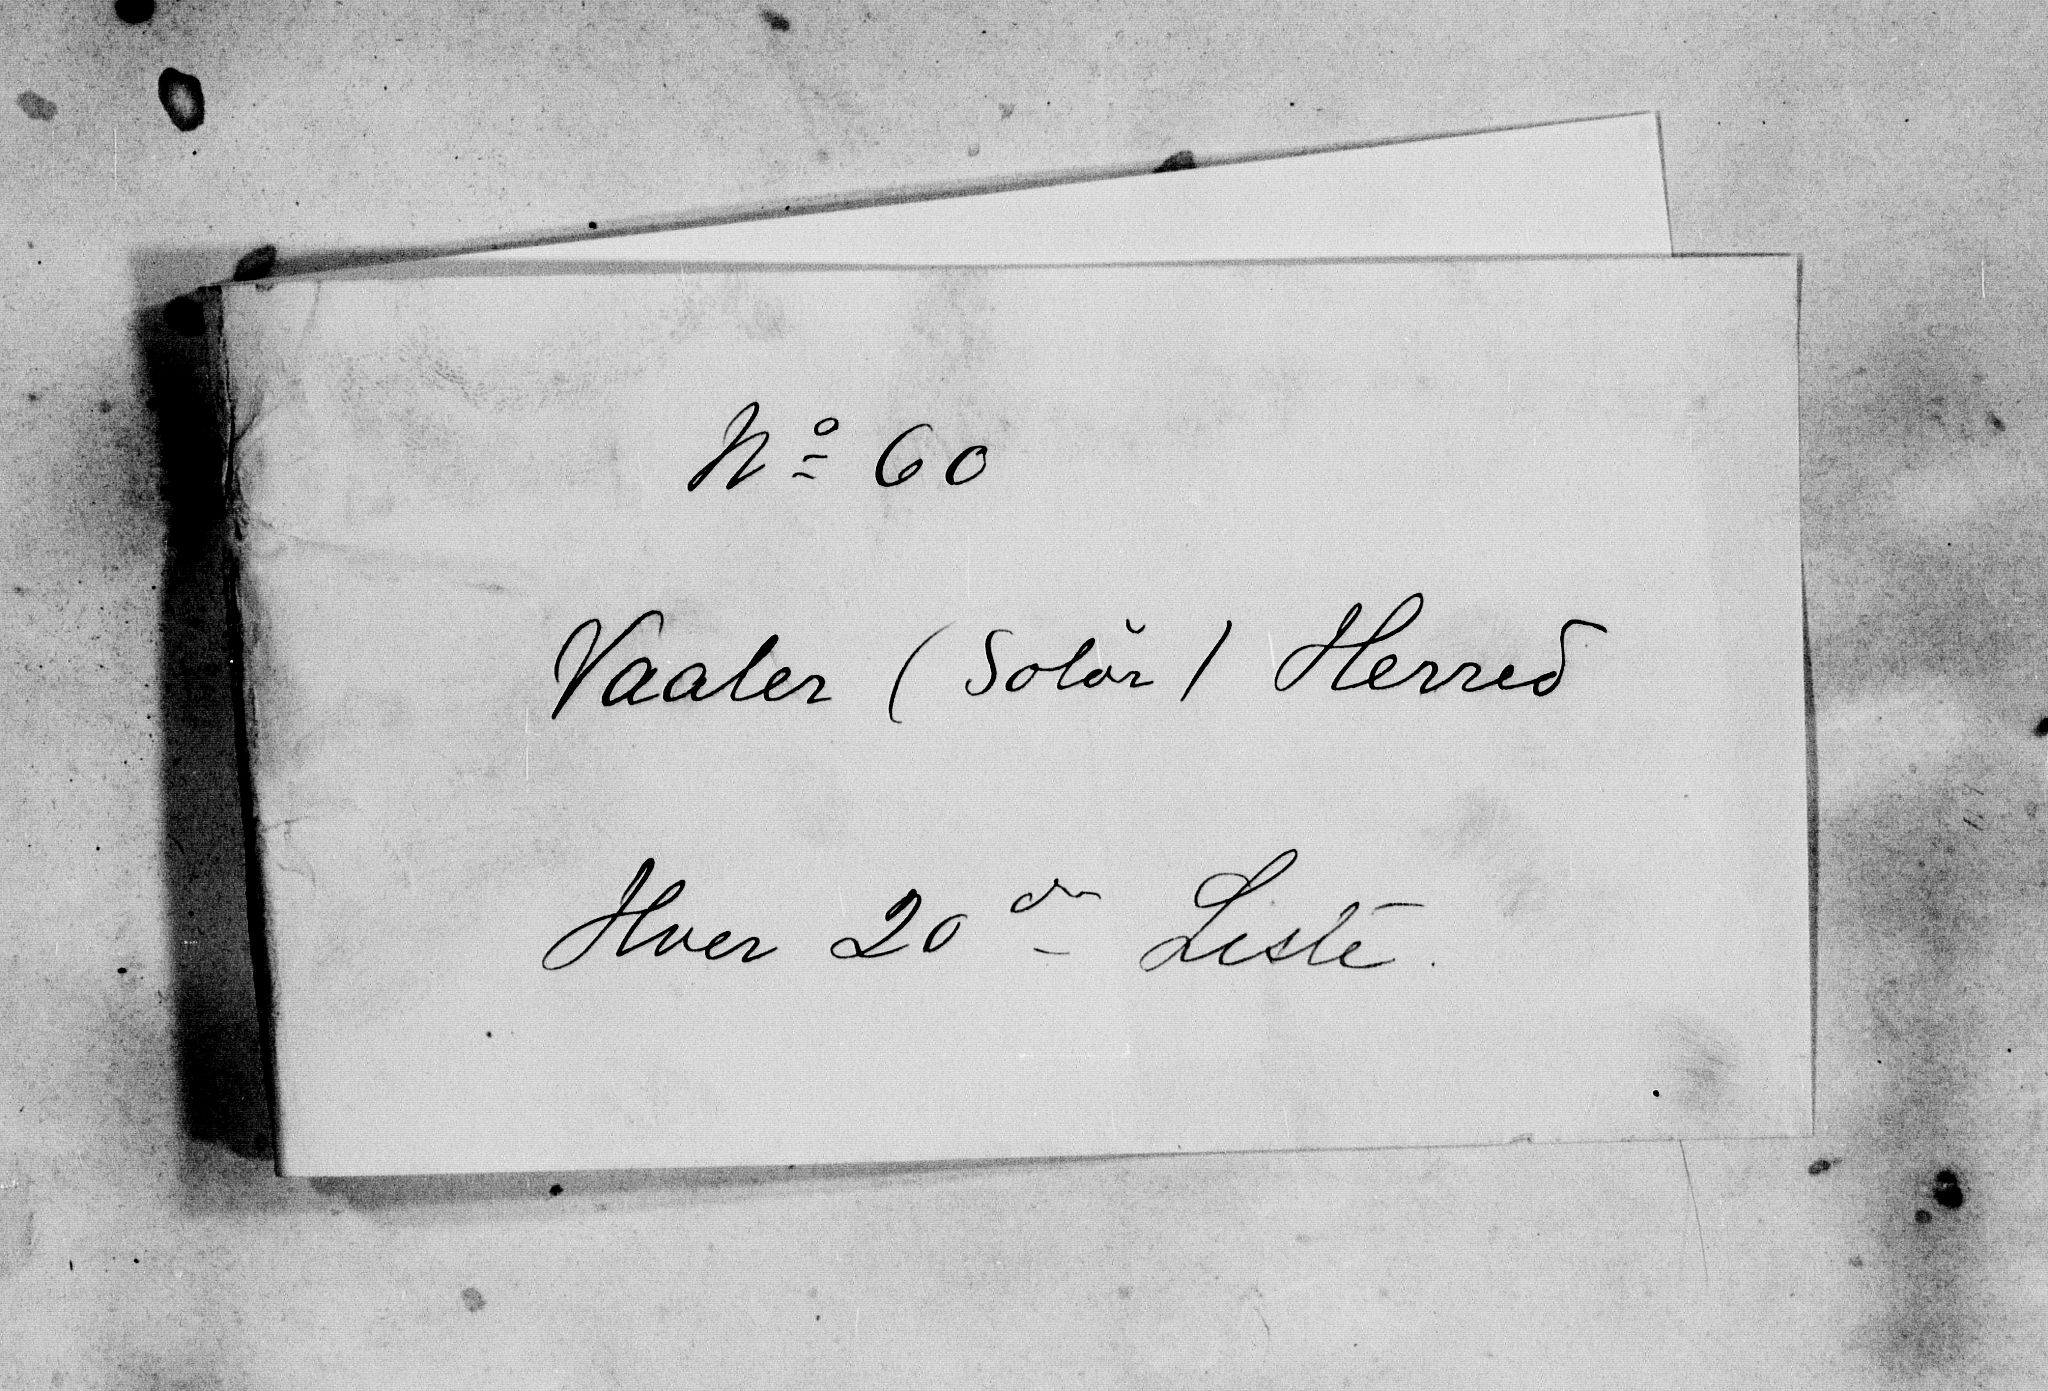 No 60
Vaaler (Solör) Herred
Hver 20de Liste.